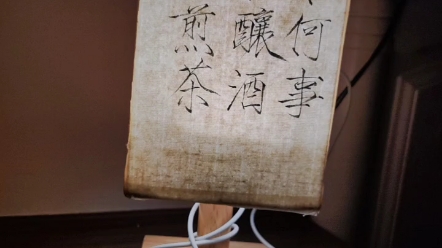 何事
釀酒
煎茶